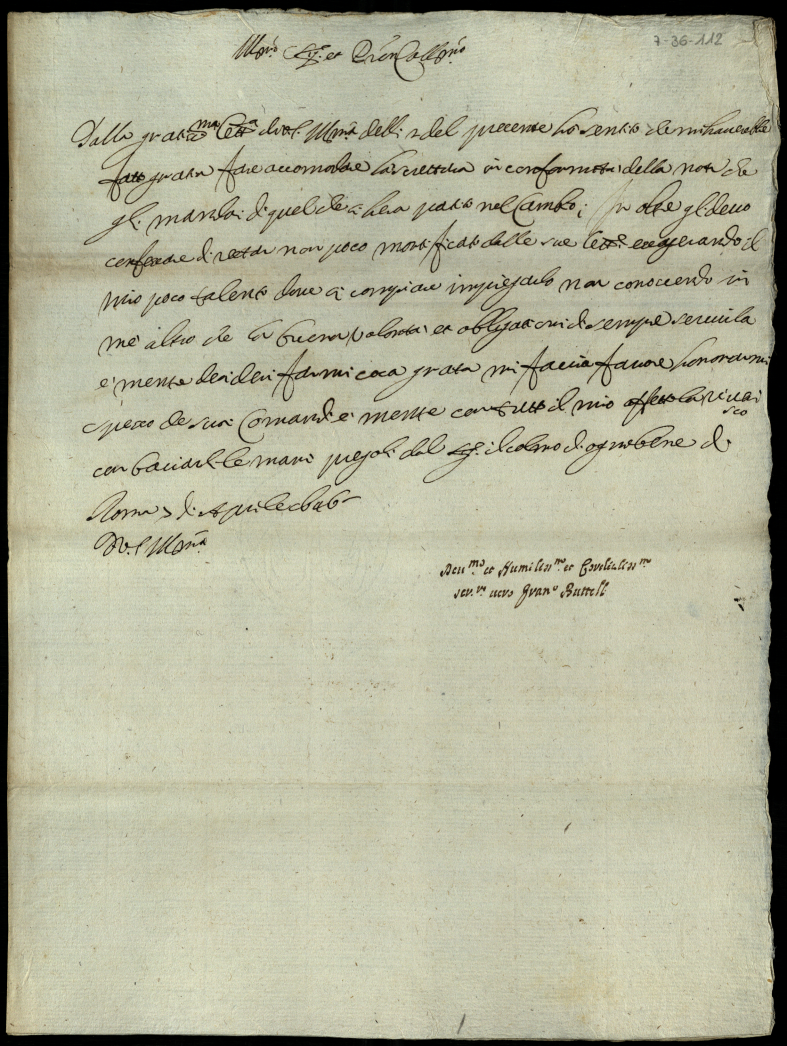 7-36-112
Ill.mo Sig.re et P.ron Coll.mo
Dalla gratis.ma lett.a di V.S. Ill.ma delli 2 del presente hò sentito che mi haverebbe
fatto gratia fare accomodare la scrittura in conformità della nota che
gli mandai di quel che si era patito nel Cambio; In oltre gli devo
confessare di restar non poco mortificato dalle sue lett.e exagerando il
mio poco talento dove si compiace impiegarlo non conoscendo in
me altro che la buona volontà et obligationi di sempre servirla
e mente desideri farmi cosa grata mi faccia favore honorarmi
spesso de suoi Comandi e mente con tutto il mio affetto la riveri
sco
con baciarli le mani pregoli dal Sig.re il colmo di ogni bene di
Roma 5 di Aprile
D. V.S. Ill.ma
Dev.mo et Humiliss.mo et Cordialiss.mo
ser.re vero Fran.o Buttelli